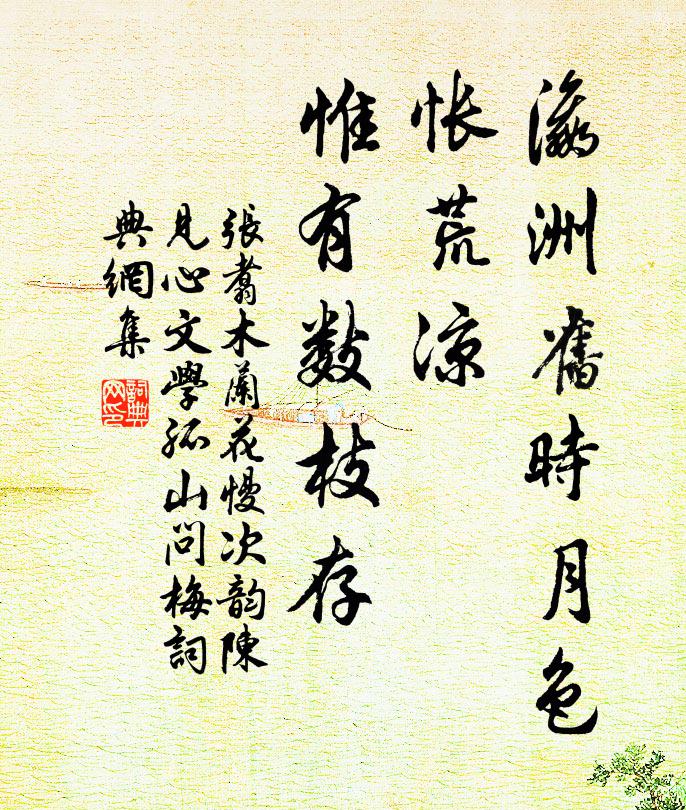 瀛洲舊時月色
悵荒涼
惟有數枝存
張翥木蘭花慢次韵陳
見心文學孤山問梅詞
典網集
詞典
网印